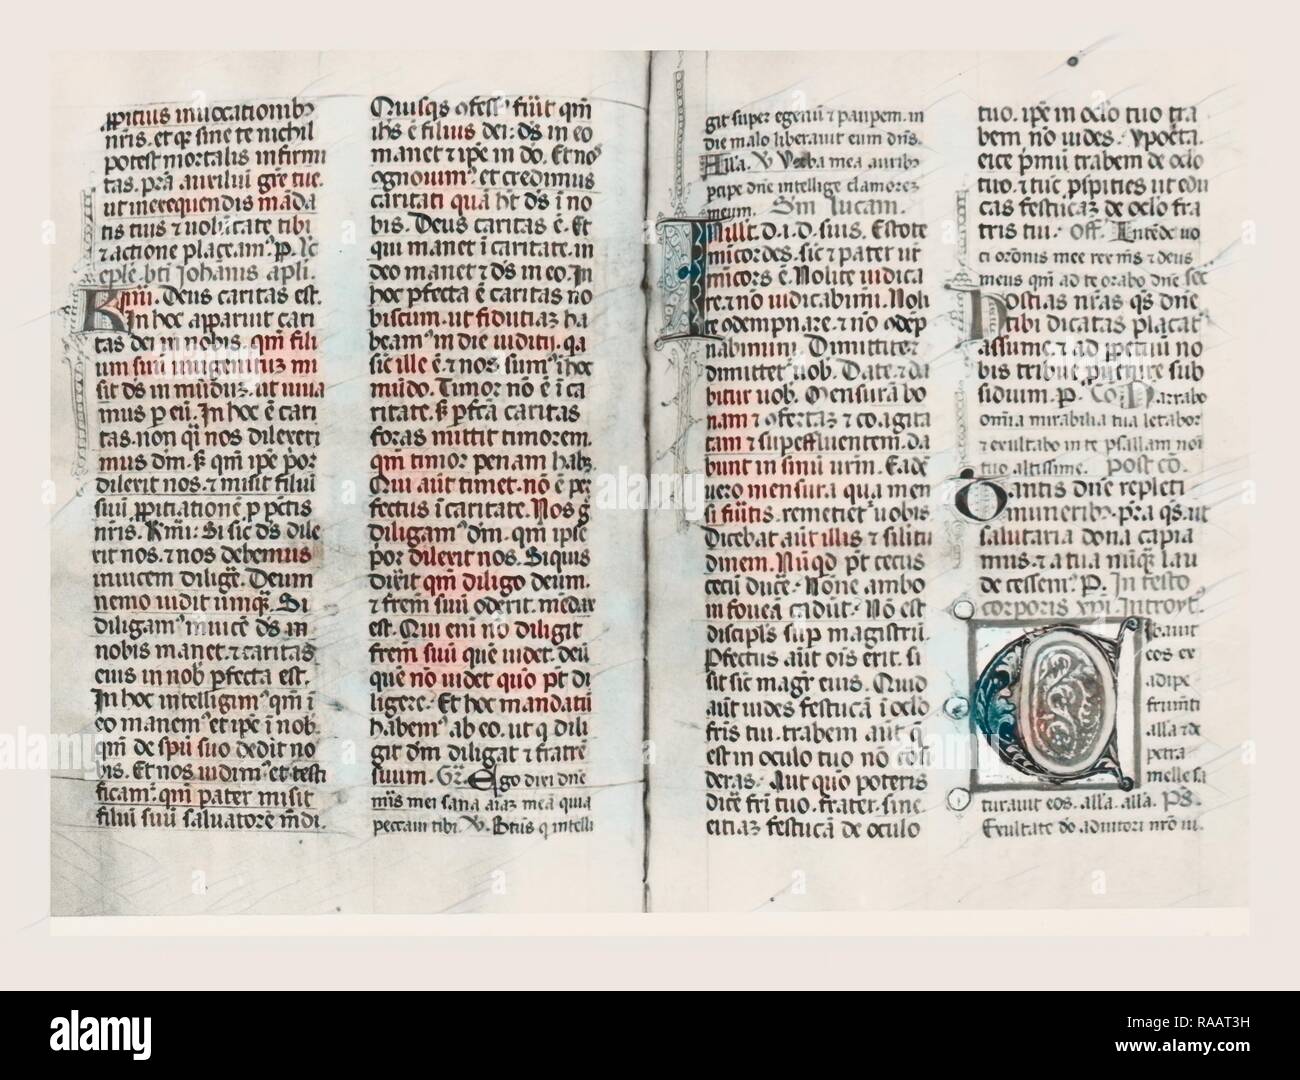 ꝓpitius inuocationibꝫ
nr̄is. et qꝛ sine te nichil
potest mortalis infirmi
tas. pr̄a auxiliū gr̄e tue.
ut in exequendis māda
tis tuis ⁊ uolūtate tibi
⁊ actione placeamꝰ. ꝑ. lc̄
ep̄le. bt̄i Johānis apl̄i.
Rm̄i. Deus caritas est.
In hoc apparuit cari
tas dei in nobis. qm̄ fili
um suū unigenitū mi
sit dš in mūdū. ut uiua
mus ꝑ eū. In hoc ē cari
tas. non qͥ nos dilexeri
mus dm̄. sꝫ qm̄ ipe p̄or
dilexit nos. ⁊ misit filiū
suū ꝓpitiationē ꝓ pc̄tis
nr̄is. Rm̄i: Si sic dš dile
xit nos. ⁊ nos debemus
inuicem diligē. Deum
nemo uidit unqͣ. Si
diligamꝰ inuicē dš in
nobis manet. ⁊ caritas
eius in nob ꝑfecta est.
In hoc intelligimꝰ qm̄ ī
eo manemꝰ et ipe ī nob.
qm̄ de spū suo dedit no
bis. Et nos uidimꝰ et testi
ficamꝰ. qm̄ pater misit
filiū suū saluatorē mūdi.
Quisqs ꝯfessꝰ fūit qm̄
ihs ē filius dei: dš in eo
manet ⁊ ipe in dō. Et nos
ognouimꝰ et credimus
caritati quā ht̄ dš ī no
bis. Deus caritas ē. Et
qui manet ī caritate. in
deo manet ⁊ dš in eo. In
hoc ꝑfecta ē caritas no
biscum. ut fiduciaꝫ ha
beamꝰ in die iudicij. qͥa
sic ille ē ⁊ nos sumꝰ ī hoc
mūdo. Timor nō ē ī ca
ritate. sꝫ ꝑfcā caritas
foras mittit timorem.
qm̄ timor penam habꝫ.
Qui aūt timet. nō ē ꝑ
fectus ī caritate. Nos g̊
diligamꝰ dm̄. qm̄ ipse
p̄or dilexit nos. Siquis
dixīt qm̄ diligo deum.
⁊ frem̄ suū oderit. mēdax
est. Qui eni nō diligit
frem̄ suū quē uidet. deū
quē nō uidet quō pt̄ di
ligere. Et hoc mandatū
habemꝰ ab eo. ut q dili
git dm̄ diligat ⁊ fratrē
suum. Gr̄. Ego dixi dne
mis̄ mei sana aīaꝫ meā quia
peccaui tibi. ꝟ. Btūs q intelli
git super egenū ⁊ paupem. in
die malo liberauit eum dn̄s.
Alla. ꝟ. Verba mea auribꝫ
pcipe dn̄e intellige clamorē
meum. Sm̄ lucam.
In illt̄. d. i. d. suis. Estote
mīcordes. sic ⁊ pater ur̄
mīcors ē. Nolite iudica
re. ⁊ nō iudicabim̄i. Noli
te ꝯdempnare. ⁊ nō ꝯdēp
nabimini. Dimittite. ⁊
dimittetꝰ uob. Date. ⁊ da
bitur uob. Mensurā bo
nam ⁊ ꝯfertaꝫ ⁊ coagita
tam ⁊ supeffluentem. da
bunt in sinū urm̄. Eadē
uero mensura qua men
si fūitis. remetietꝰ uobis
Dicebat aūt illis ⁊ silitu
dinem. Nūqd pt̄ cecus
cecū ducē. Nōne ambo
in foueā cadūt. Nō est
discipl̄s sup magistrū.
Pfectus aūt oīs erit. si
sit sic magr̄ eius. Quid
aūt uides festucā ī oclo
fris̄ tui. trabem aūt q
est in oculo tuo nō cōsi
deras. Aut quō poteris
dicē fri̅ tuo. frater. sine.
eiciaꝫ festucā de oculo
tuo. ipē in oclo tuo tra
bem nō uides. ypocrita.
eice p̄mū trabem de oclo
tuo. ⁊ tūc pspicies ut edu
cas festucaꝫ de oclo fra
tris tui. Off. Intēde uo
ci orōnis mee rex ms̄ ⁊ deus
meus qm̄ ad te orabo dn̄e. Sec̄
Hostias nr̄as qš dn̄e
tibi dicatas placatꝰ
assume. ⁊ ad ꝓpetuū no
bis tribue puenire sub
sidium. ꝑ. Co. Narrabo
om̄ia mirabilia tua letabor
⁊ exultabo in te psallam noī
tuo altissime. Post cō.
Santis dn̄e repleti
muneribꝫ. pr̄a qš. ut
salutaria dona capia
mus. ⁊ a tua nūqͣ lau
de cessemꝰ. ꝑ. In festo
corporis xp̄i. Introyt.
Cibauit
eos ex
adipe
frum̄ti
alla ⁊ de
petra
melle sa
turauit eos. alla. alla. Pš.
Exultate dō adiutori nr̄o iu.
alamy
RAAT3H
www.alamy.com